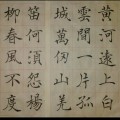 黄河遠上白
雲間一片孤
城萬仞山羌
笛何須怨楊
柳春風不度